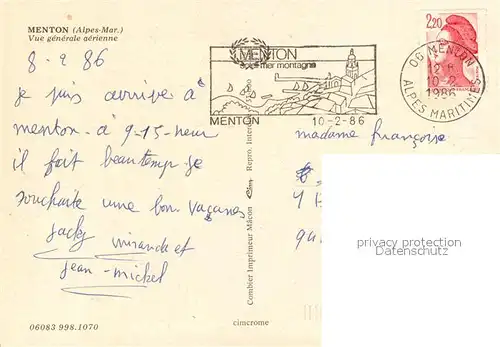 MENTON (Alpes-Mar.)
Vue générale aérienne
8-2 86
je suis arrivé à
menton - à 9-15-heur
il fait beau temp je
souhaite une bon vacanes
Jacky miranda et
jean-mickel
06083 998.1070
Combier Imprimeur Mâcon Repro. Inter
cimcrome
MENTON
mer montagne
MENTON 10-2-86
2,20
06 MENTON
10-2
1986
ALPES MARITIMES
madame françoise
privacy protection
Datenschutz